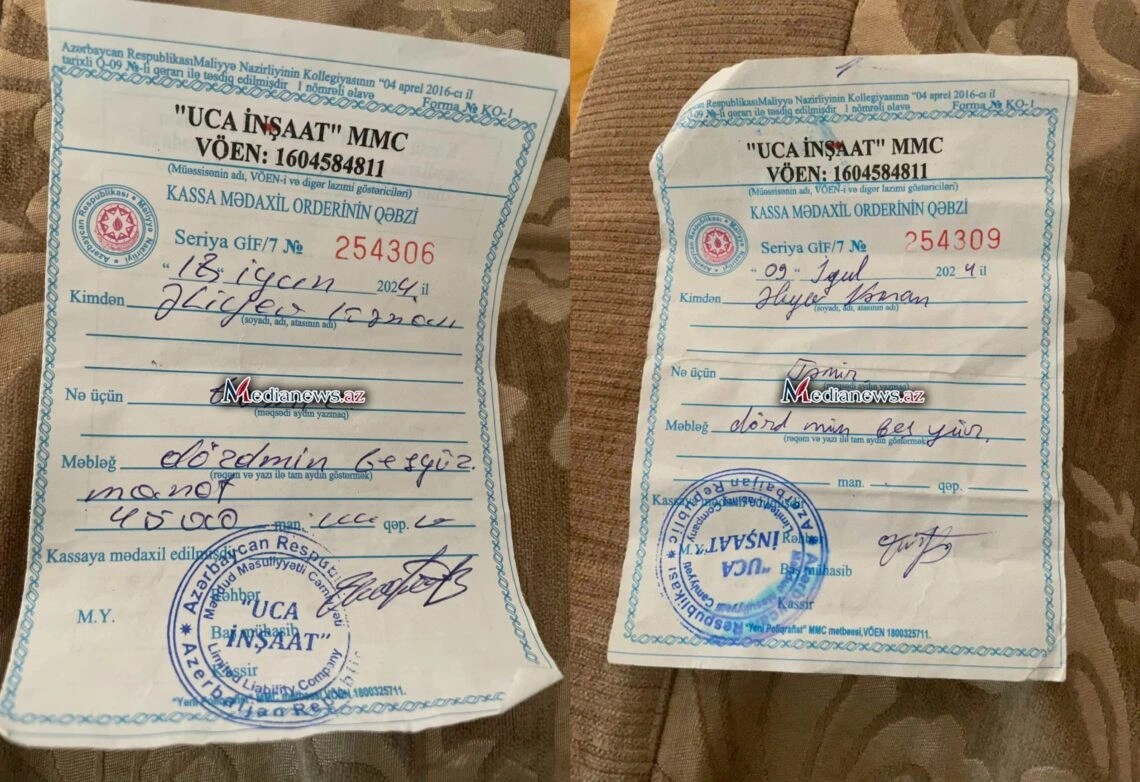 Azərbaycan RespublikasıMaliyyə Nazirliyinin Kollegiyasının "04 aprel 2016-cı il
tarixli Q-09 №-li qərarı ilə təsdiq edilmişdir 1 nömrəli əlavə
Forma № KO-1
"UCA İNŞAAT" MMC
VÖEN: 1604584811
(Müəssisənin adı, VÖEN-i və digər lazımi göstəriciləri)
KASSA MƏDAXİL ORDERİNİN QƏBZİ
Azərbaycan Respublikası Maliyyə Nazirliyi
Seriya GİF/7 № 254306
"18" iyun 2024 il
Kimdən Əliyev Kənan
(soyadı, adı, atasının adı)
Nə üçün
Medianews.az
(məqsədi aydın yazmaq)
Məbləğ dördmin beşyüz.
(rəqəm və yazı ilə tam aydın göstərmək)
manat
4500 man. qəp.
Kassaya mədaxil edilmişdir
Rəhbər
M.Y.
Baş mühasib
Kassir
Azərbaycan Respublikası
Məhdud Məsuliyyətli Cəmiyyəti
"UCA İNŞAAT"
Limited Liability Company
Azerbaijan Republic
"Yeni Poliqrafist" MMC mətbəəsi,VÖEN.1800325711.
Azərbaycan RespublikasıMaliyyə Nazirliyinin Kollegiyasının "04 aprel 2016-cı il
Q-09 №-li qərarı ilə təsdiq edilmişdir 1 nömrəli əlavə
Forma № KO-1
"UCA İNŞAAT" MMC
VÖEN: 1604584811
(Müəssisənin adı, VÖEN-i və digər lazımi göstəriciləri)
KASSA MƏDAXİL ORDERİNİN QƏBZİ
Seriya GİF/7 № 254309
"09" İyul 2024 il
Kimdən Əliyev Kənan
(soyadı, adı, atasının adı)
Nə üçün Təmir
Medianews.az
yazmaq)
Məbləğ dörd min beş yüz.
(rəqəm və yazı ilə tam aydın göstərmək)
man. qəp.
Kassaya mədaxil edilmişdir
M.Y. Rəhbər
Baş mühasib
Kassir
Azərbaycan Respublikası
Məhdud Məsuliyyətli Cəmiyyəti
"UCA İNŞAAT"
Limited Liability Company
Azerbaijan Republic
"Yeni Poliqrafist" MMC mətbəəsi,VÖEN 1800325711.